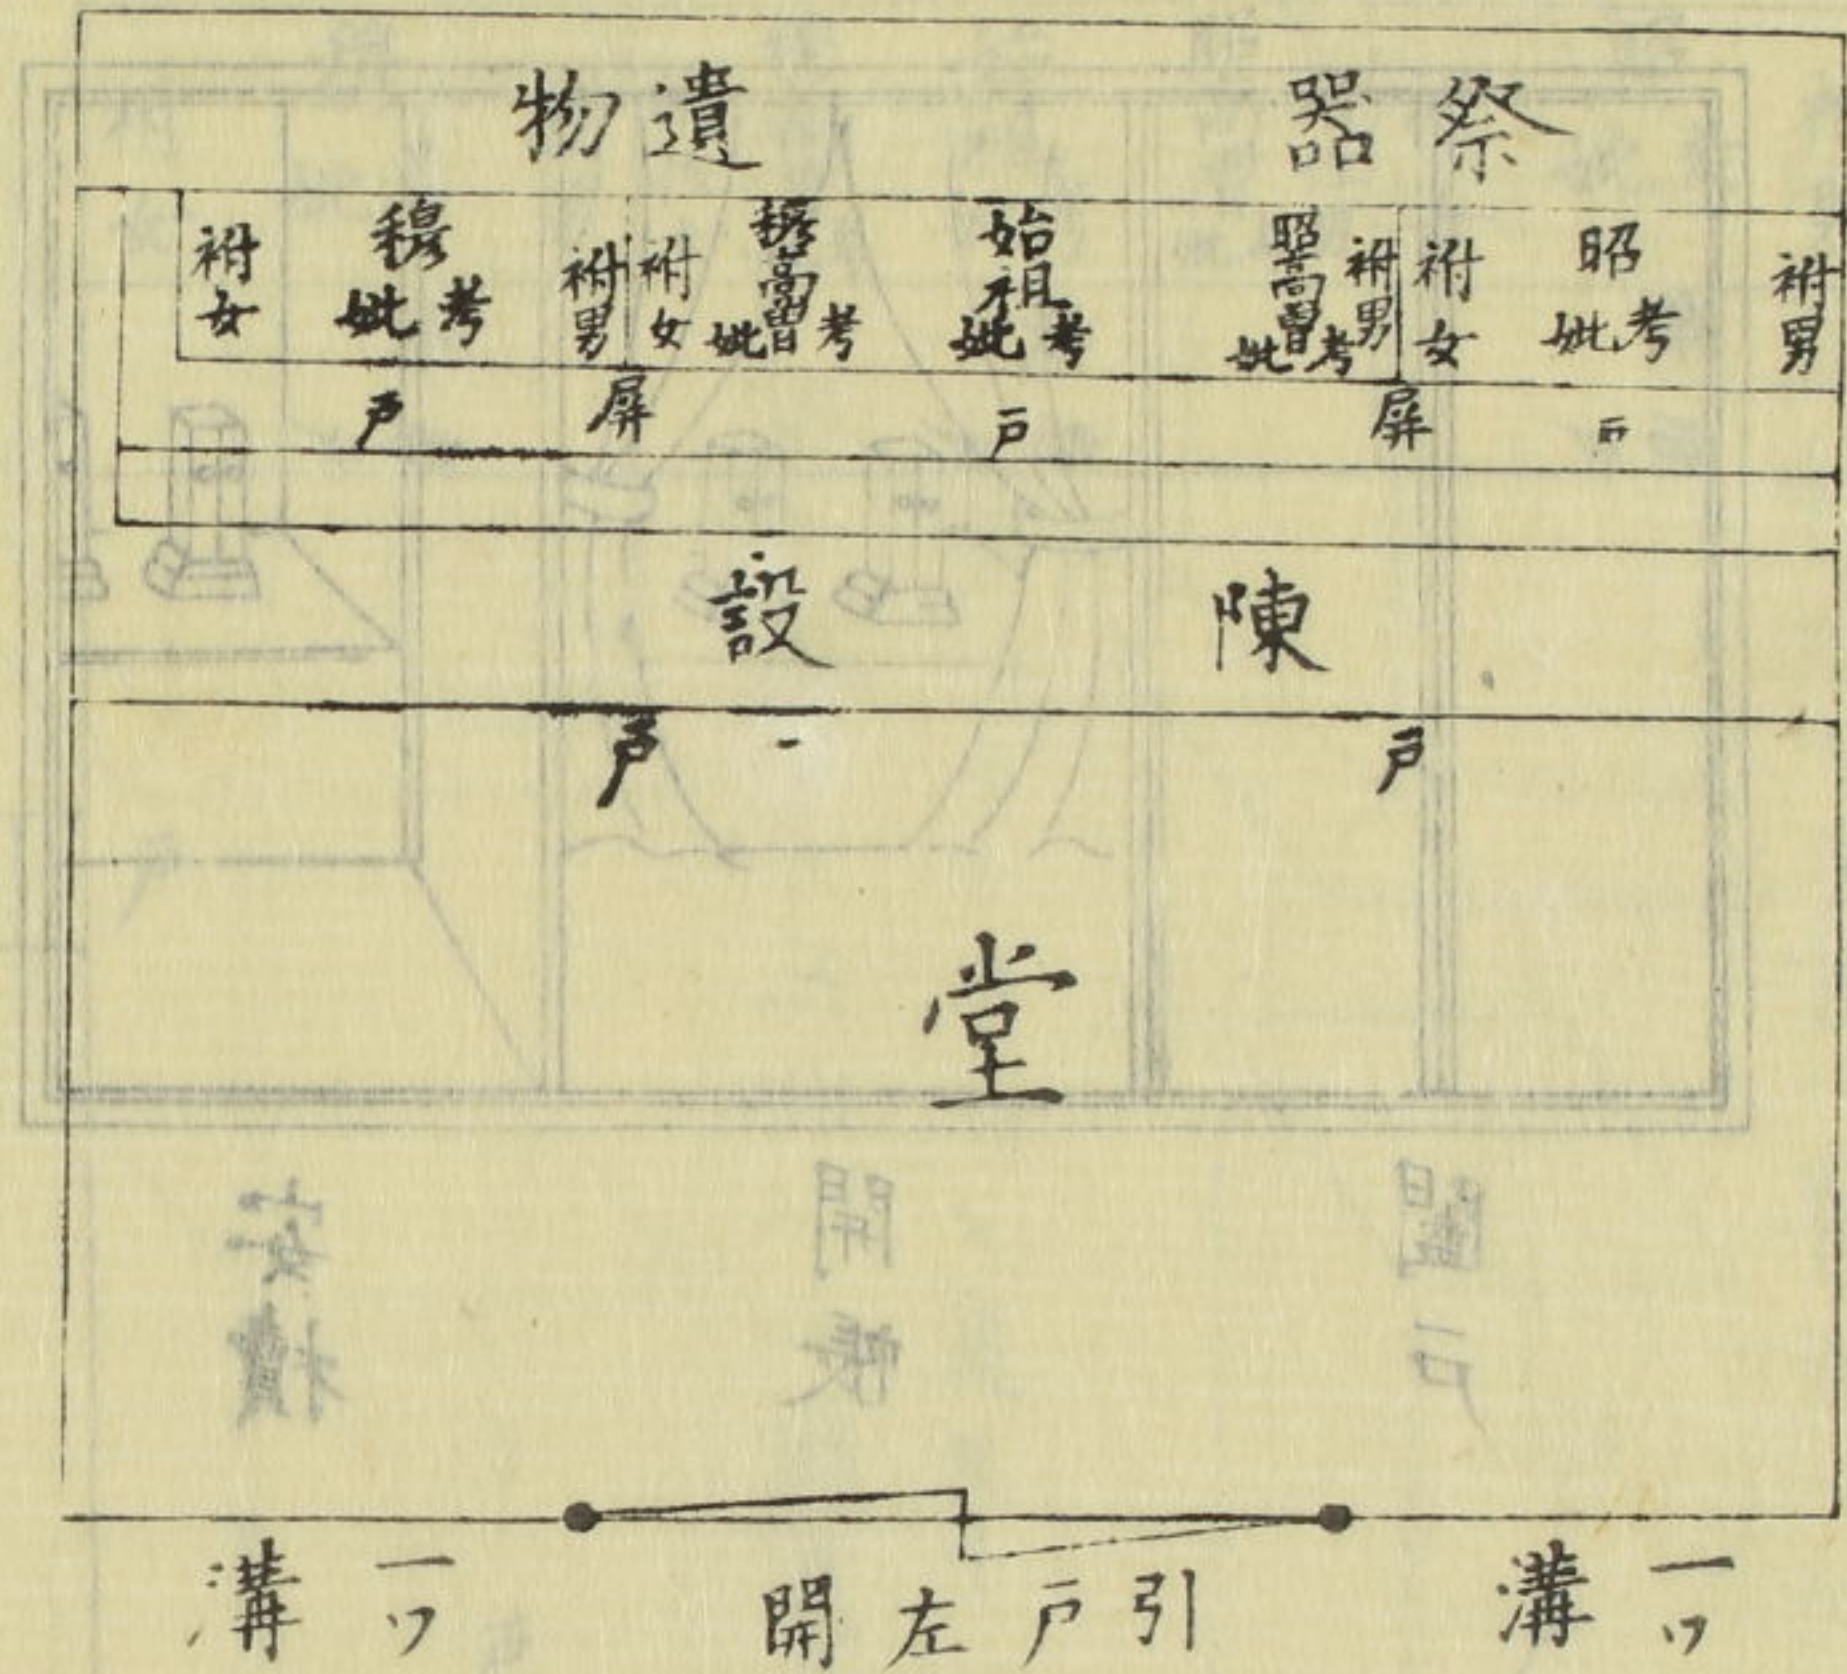 祭器
遺物
祔男
昭
考
妣
祔女
祔男
昭高曽
考
妣
始祖
考
妣
穆高曽
考
妣
祔女
祔男
穆
考
妣
祔女
戸
屏
戸
屏
戸
陳設
戸
戸
堂
一ツ溝
引戸左開
一ツ溝